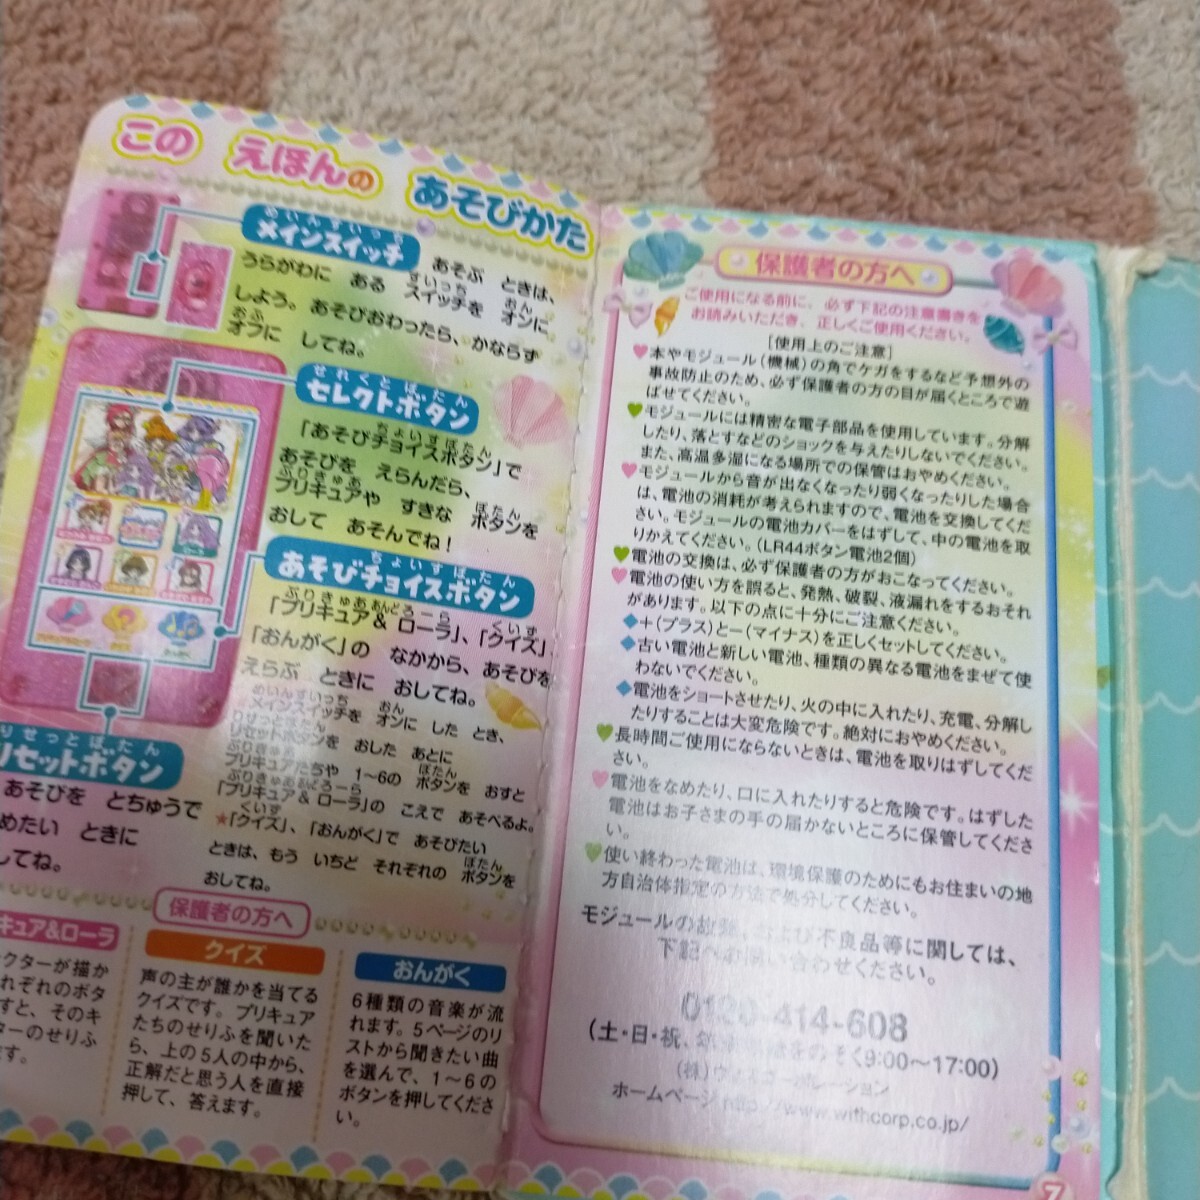 この えほんの あそびかた
めいんすいっち
メインスイッチ
あそぶ ときは、
うらがわに ある スイッチを オンに
すいっち おん
しよう。あそびおわったら、かならず
おふ
オフに してね。
せれくとぼたん
セレクトボタン
ちょいすぼたん
「あそびチョイスボタン」で
あそびを えらんだら、
ぷりきゅあ ぼたん
プリキュアや すきな ボタンを
おして あそんでね！
ちょいすぼたん
あそびチョイスボタン
ぷりきゅああんどろーら くいず
「プリキュア& ローラ」、「クイズ」、
「おんがく」の なかから、あそびを
えらぶ ときに おしてね。
めいんすいっち おん
メインスイッチを オンに した とき、
りせっとぼたん
リセットボタンを おした あとに
ぷりきゅあ ぼたん
プリキュアたちや 1~6の ボタンを おすと
ぷりきゅああんどろーら
「プリキュア & ローラ」の こえで あそべるよ。
くいず
★「クイズ」、「おんがく」で あそびたい
ときは、もう いちど それぞれの ボタンを
ぼたん
おしてね。
りせっとぼたん
リセットボタン
あそびを とちゅうで
めたい ときに
してね。
保護者の方へ
キュア&ローラ
クターが描か
れぞれのボタ
すと、そのキ
ターのせりふ
ます。
クイズ
声の主が誰かを当てる
クイズです。プリキュア
たちのせりふを聞いた
ら、上の5人の中から、
正解だと思う人を直接
押して、答えます。
おんがく
6種類の音楽が流
れます。5ページのリ
ストから聞きたい曲
を選んで、1~6の
ボタンを押してくださ
い。
保護者の方へ
ご使用になる前に、必ず下記の注意書きを
お読みいただき、正しくご使用ください。
[使用上のご注意]
♥本やモジュール(機械)の角でケガをするなど予想外の
事故防止のため、必ず保護者の方の目が届くところで遊
ばせてください。
♥モジュールには精密な電子部品を使用しています。分解
したり、落とすなどのショックを与えたりしないでください。
また、高温多湿になる場所での保管はおやめください。
♥モジュールから音が出なくなったり弱くなったりした場合
は、電池の消耗が考えられますので、電池を交換してくだ
さい。モジュールの電池カバーをはずして、中の電池を取
りかえてください。(LR44ボタン電池2個)
♥電池の交換は、必ず保護者の方がおこなってください。
♥電池の使い方を誤ると、発熱、破裂、液漏れをするおそれ
があります。以下の点に十分にご注意ください。
◆＋(プラス)とー(マイナス)を正しくセットしてください。
◆古い電池と新しい電池、種類の異なる電池をまぜて使
わないでください。
◆電池をショートさせたり、火の中に入れたり、充電、分解し
たりすることは大変危険です。絶対におやめください。
♥長時間ご使用にならないときは、電池を取りはずしてくだ
さい。
♥電池をなめたり、口に入れたりすると危険です。はずした
電池はお子さまの手の届かないところに保管してくださ
い。
♥使い終わった電池は、環境保護のためにもお住まいの地
方自治体指定の方法で処分してください。
モジュールの故障、および不良品等に関しては、
下記へお問い合わせください。
0120-414-608
(土・日・祝、をのぞく9:00~17:00)
(株)ウィズコーポレーション
ホームページ http://www.withcorp.co.jp/
7